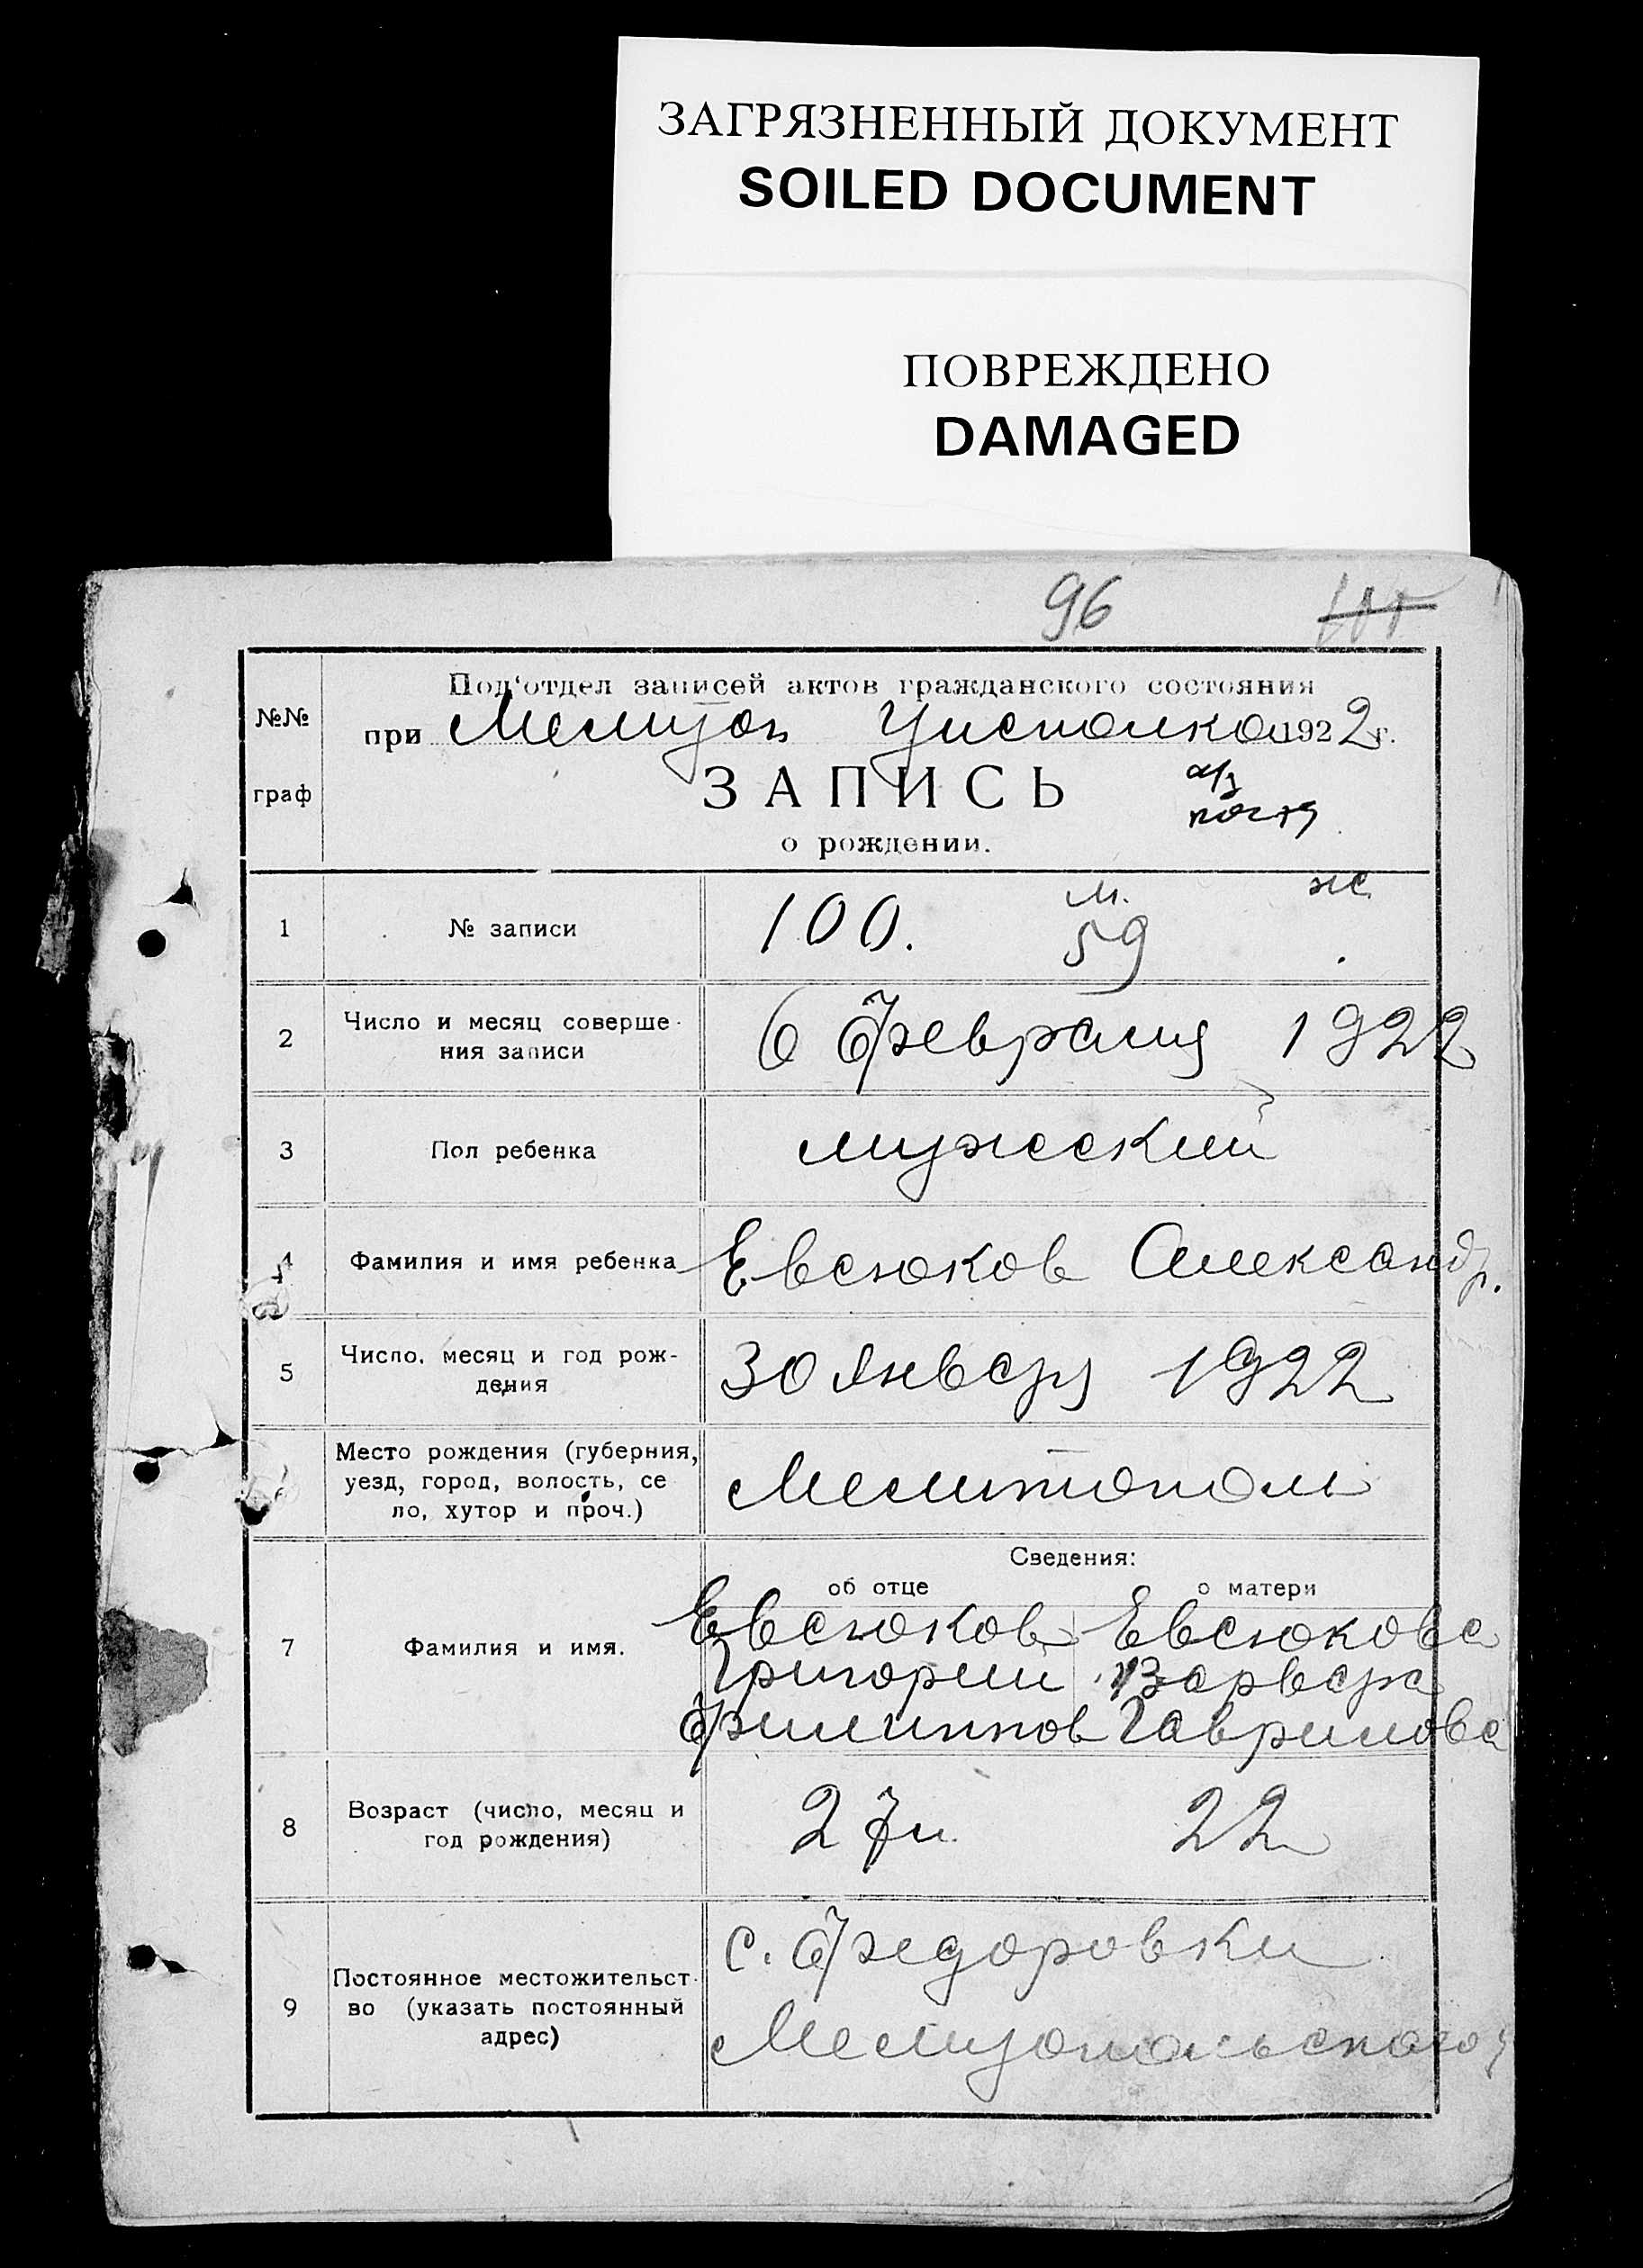 ЗАГРЯЗНЕННЫЙ ДОКУМЕНТ
SOILED DOCUMENT
ПОВРЕЖДЕНО
DAMAGED
96
№№
граф
Под‘отдел записей актов гражданского состояния
при Мелитоп Уисполком 1922 г.
ЗАПИСЬ
о рождении.
м. ж.
1 № записи 100. 59
2 Число и месяц соверше-
ния записи
6 Февраля 1922
3 Пол ребенка мужеский
4 Фамилия и имя ребенка Евсюков Александр.
5 Число, месяц и год рож-
дения
30 Января 1922
Место рождения (губерния,
уезд, город, волость, се
ло, хутор и проч.)
Мелитополь
Сведения:
об отце о матери
7 Фамилия и имя.
Евсюков Евсюкова
Григорий Варвара
Филиппов Гаврилова
8 Возраст (число, месяц и
год рождения)
27 л. 22
9 Постоянное местожительст-
во (указать постоянный
адрес)
с. Федоровки
Мелитопольского у